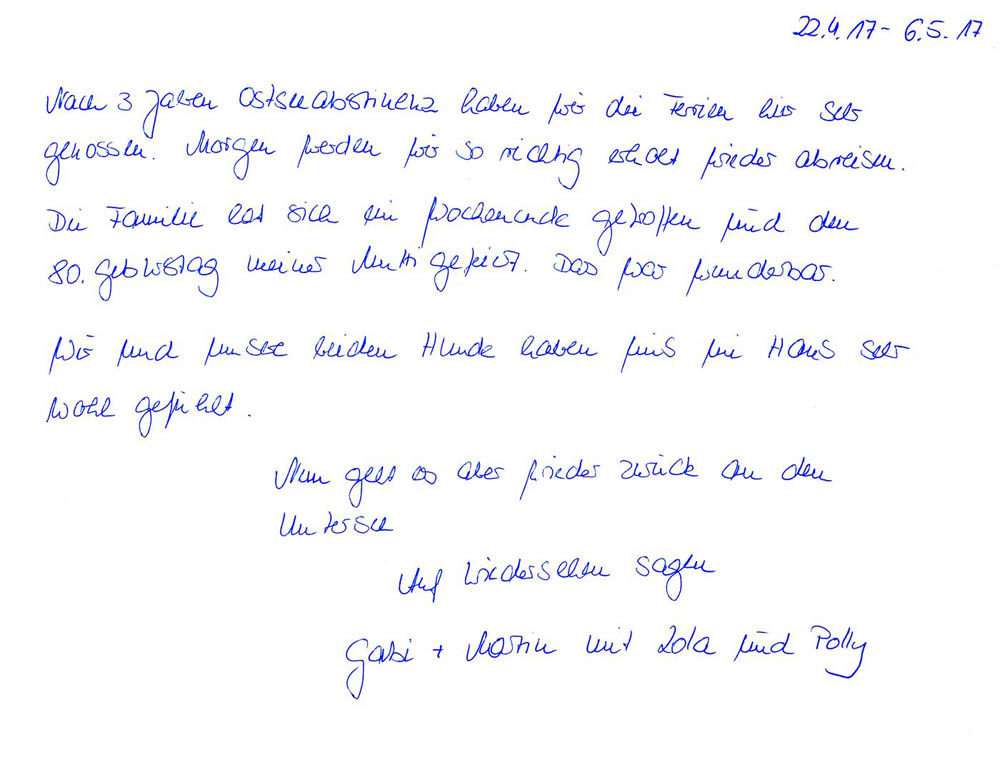 22.4.17 - 6.5.17
Nach 3 Jahren Ostseeabstinenz haben wir die Ferien hier sehr
genossen. Morgen werden wir so richtig erholt wieder abreisen.
Die Familie hat sich ein Wochenende getroffen und den
80. Geburtstag meiner Mutti gefeiert. Das war wunderbar.
Wir und unsere beiden Hunde haben uns im Haus sehr
wohl gefühlt.
Nun geht es aber wieder zurück an den
Untersee
Auf Wiedersehen sagen
Gabi + Martin mit Lola und Polly